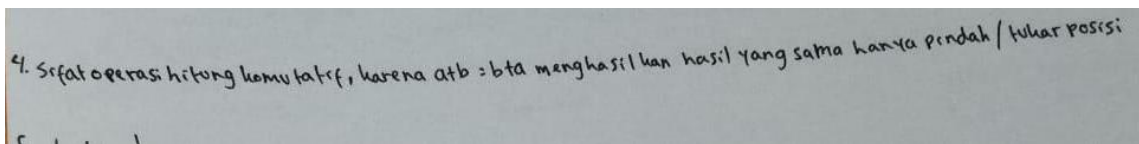 4. Sifat operasi hitung komutatif, karena a+b = b+a menghasilkan hasil yang sama hanya pindah / tukar posisi